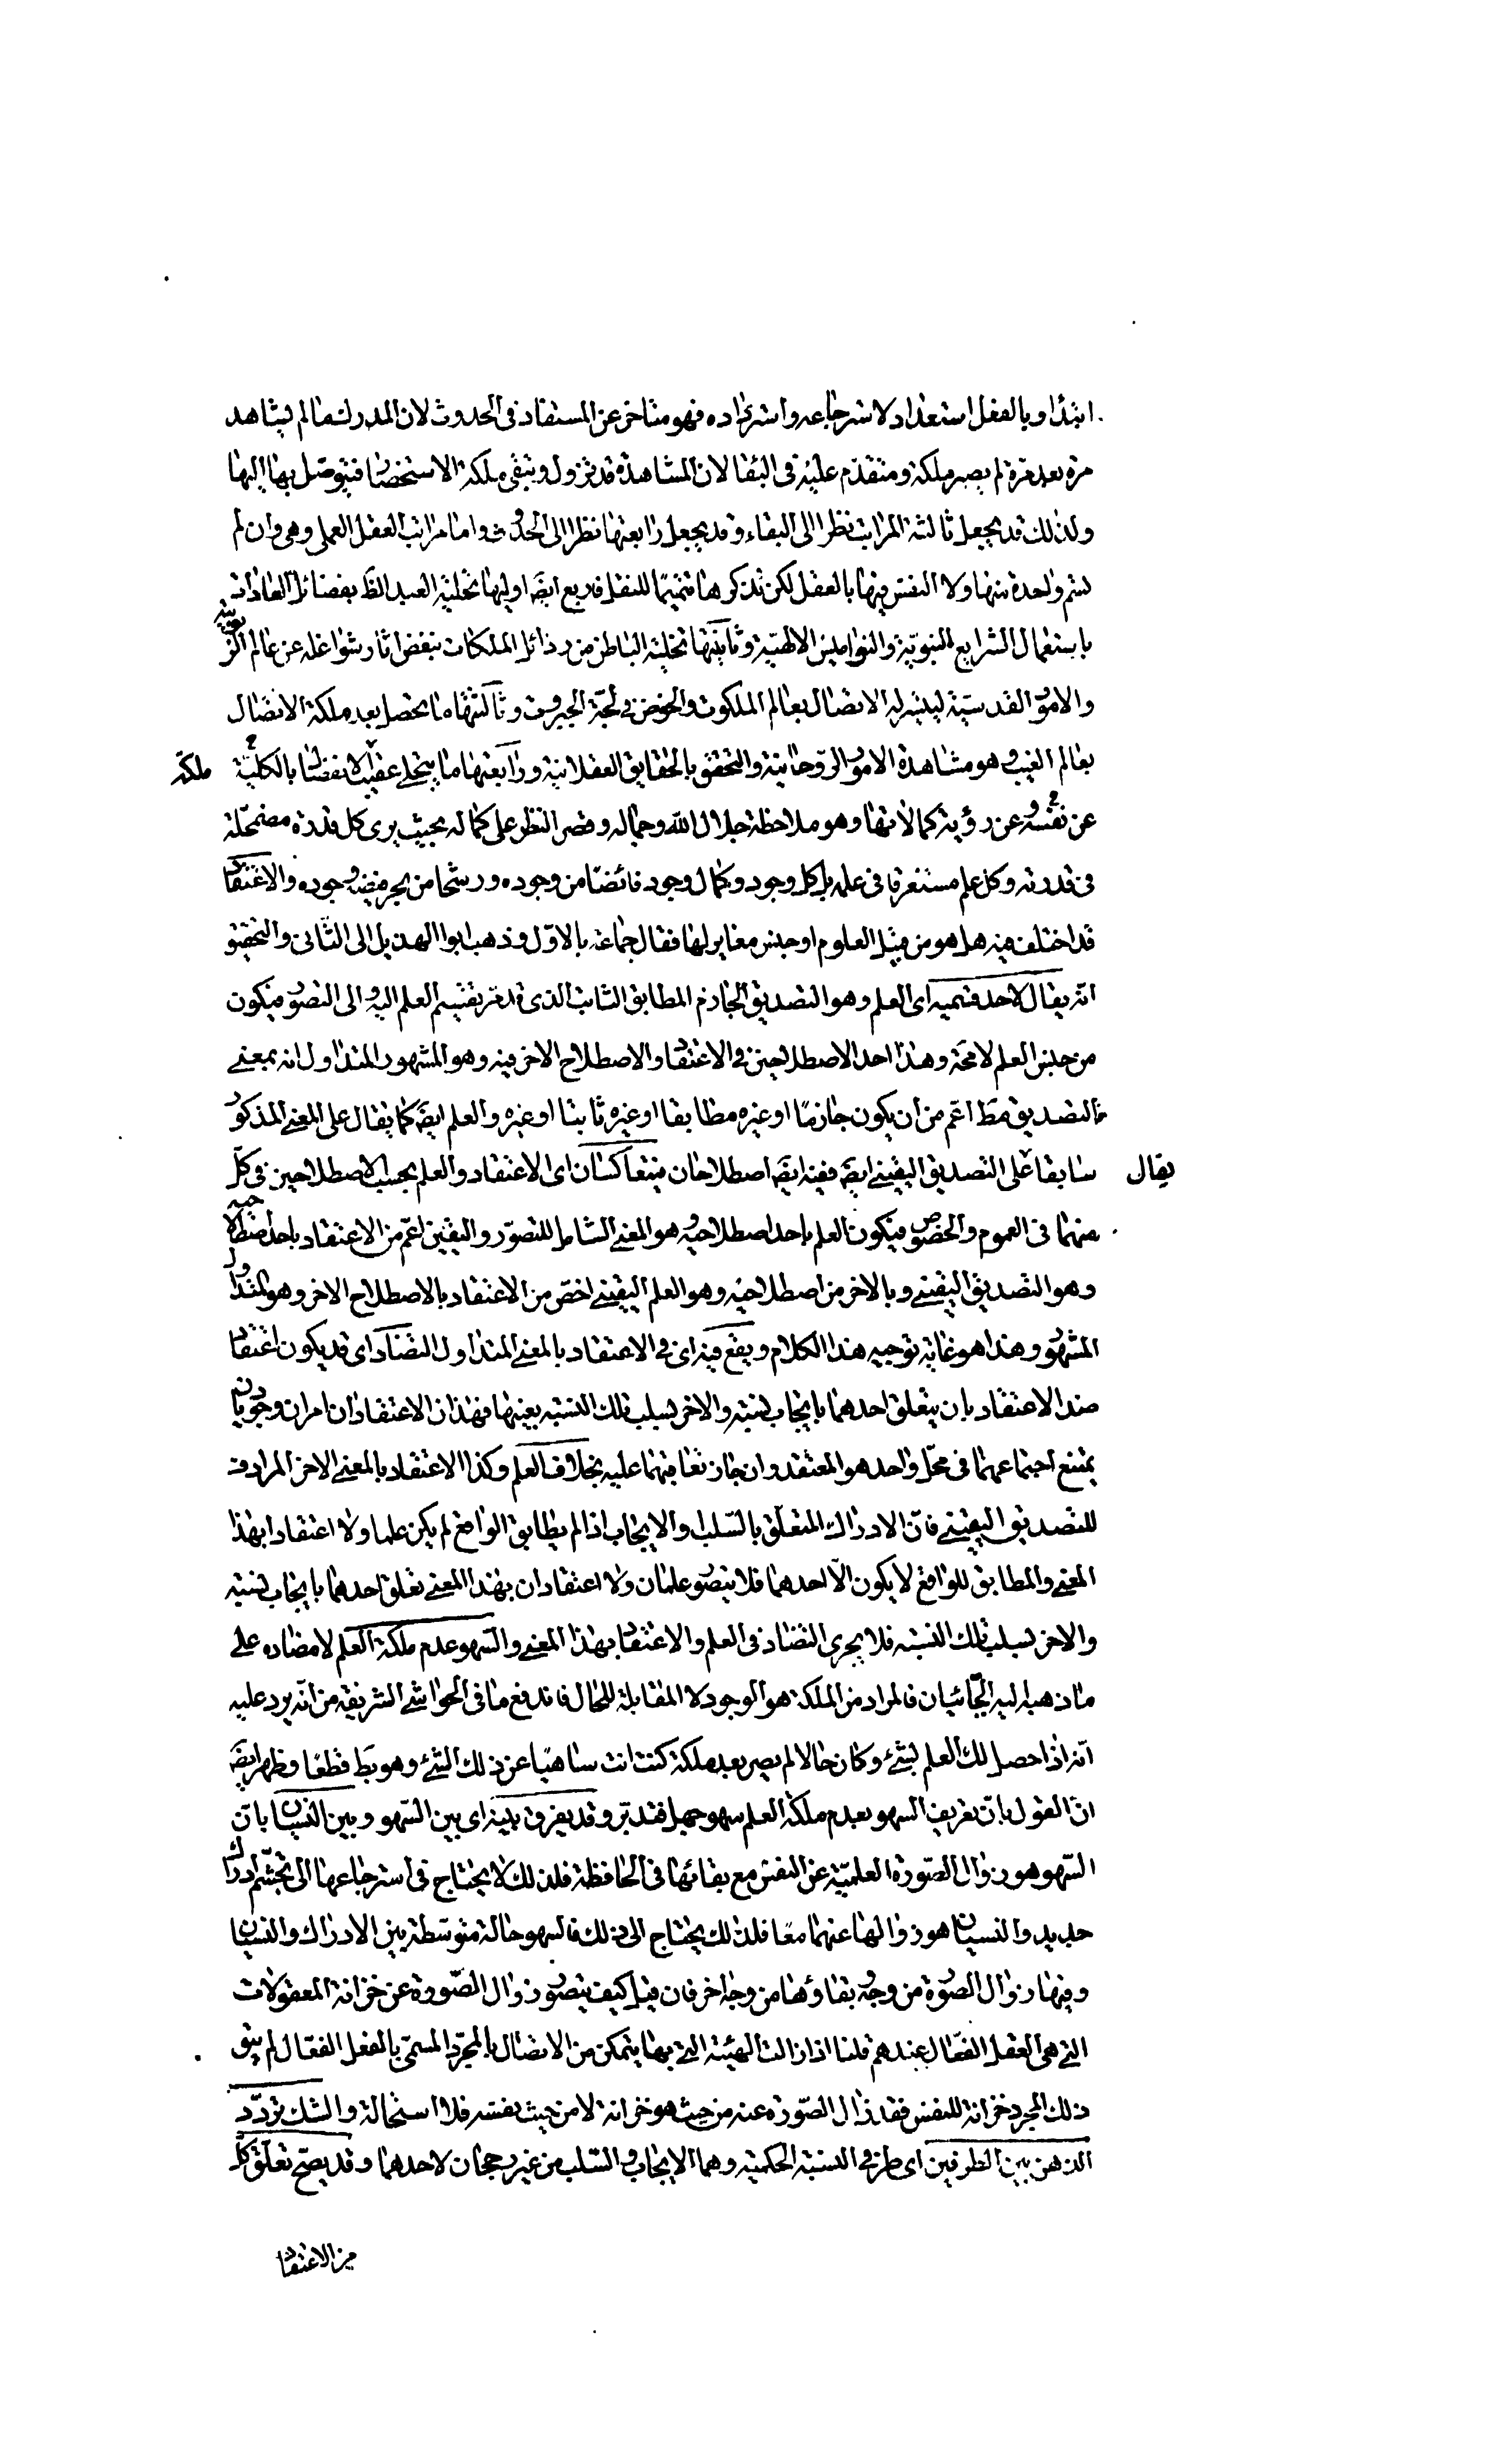 ابتداء وبالفعل استعداد لاسترجاعه واسترداده فهو متاخر عن المستفاد فى الحدوث لان المدرك ما لم يشاهد
مرة بعد مرة لم يصير ملكة ومتقدم عليه فى البقا لان المشاهدة قد تزول ويبقى ملكة الاستحضار فيتوصل بها اليها
ولذلك قد يجعل ثالثة المراتب نظرا الى البقاء وقد يجعل رابعتها نظرا الى الحدوث واما مراتب العقل العملى وهى وان لم
يسم واحدة منها ولا النفس فيها بالعقل لكن نذكرها تتميما للنقل فاربع ايضَ اوليها تحلية العبد الظَ بفضائل العادات
باستعمال الشرايع النبوية والنواميس الالهية وثانيتها تخلية الباطن من رذائل الملكات بنفض اثار شواغله عن عالم الربوبية
والامور القدسية ليتيسر له الاتصال بعالم الملكوت والخوض فى لجة الجبروت وثالثتها ما يحصل بعد ملكة الاتصال
بعالم الغيب وهو مشاهدة الامور الروحانية والتحقق بالحقايق العقلانية ورابعتها ما يتجلى عقيب الانفصال بالكلية ملكة
عن نفسه وعن رؤية كمالاتها وهو ملاحظة جلال الله وجماله وقصر النظر على كماله بحيث يرى كل قدرة مضمحلة
فى قدرته وكل علم مستغرقا فى علمه بل كل وجود وكمال وجود فائضا من وجوده ورشحا من بحر فيض وجوده والاعتقاد
قد اختلف فيه هل هو من قبيل العلوم او جنس مغاير لها فقال جماعة بالاول وذهب ابوا الهذيل الى الثانى والتحقيق
انه يقال لاحد قسميه اى العلم وهو التصديق الجازم المطابق الثابت الذى قد مر تقسيم العلم اليه والى التصور فيكون
من جنس العلم لا محة وهذا احد الاصطلاحين فى الاعتقاد والاصطلاح الاخر فيه وهو المشهور المتداول انه بمعنى
التصديق مطَ اعم من ان يكون جازما او غيره مطابقا او غيره ثابتا او غيره والعلم ايضَ كما يقال على المعنى المذكور
يقال سابقا على التصديق اليقينى ايضَ ففيه ايضَ اصطلاحان فيتعاكسان اى الاعتقاد والعلم بحسب الاصطلاحين فى كل
منهما فى العموم والخصوص فيكون العلم باحد اصطلاحيه وهو المعنى الشامل للتصور واليقين اعم من الاعتقاد باحد اصطلاحيه
وهو التصديق اليقينى وبالاخر من اصطلاحيه وهو العلم اليقينى اخص من الاعتقاد بالاصطلاح الاخر وهو المتداول
المشهور وهذا هو غاية توجيه هذا الكلام ويقع فيه اى فى الاعتقاد بالمعنى المتداول التضاد اى قد يكون اعتقاد
ضد الاعتقاد بان يتعلق احدهما بايجاب نسبة والاخر بسلب تلك النسبة بعينها فهذان الاعتقادان امران وجوديان
يمتنع اجتماعهما فى محل واحد هو المعتقد وان جاز تعاقبهما عليه بخلاف العلم وكذا الاعتقاد بالمعنى الاخر المرادف
للتصديق اليقينى فان الادراك المتعلق بالسلب والايجاب اذا لم يطابق الواقع لم يكن علما ولا اعتقادا بهذا
المعنى والمطابق للواقع لا يكون الا احدهما فلا يتصور علمان ولا اعتقادان بهذا المعنى تعلق احدهما بايجاب نسبة
والاخر بسلب تلك النسبة فلا يجرى التضاد فى العلم والاعتقاد بهذا المعنى والسهو عدم ملكة العلم لا مضاده على
ما ذهب اليه الجبائيان فالمراد من الملكة هو الوجود لا المقابلة للحال فاندفع ما فى الحواشى الشريفة من انه يرد عليه
انه اذا حصل لك العلم بشئ وكان حالا لم يصير بعد ملكة كنت انت ساهيا عن ذلك الشئ وهو بطَ قطعا وظهر ايضَ
ان القول بان تعريف السهو بعدم ملكة العلم سهو جهل فتدبر وقد يفرق بينه اى بين السهو وبين النسيان بان
السهو هو زوال الصورة العلمية عن النفس مع بقائها فى الحافظة فلذلك لا يحتاج فى استرجاعها الى تجشم ادراك
جديد والنسيان هو زوالها عنهما معا فلذلك يحتاج الى ذلك فالسهو حالة متوسطة بين الادراك والنسيان
وفيها زوال الصورة من وجه وبقاؤها من وجه اخر فان قيل كيف يتصور زوال الصورة عن خزانة المعقولات
التى هى العقل الفعال عندهم قلنا اذا زالت الهيئة التى بها يتمكن من الاتصال بالمجرد المسمى بالعقل الفعال لم يبق
ذلك المجرد خزانة للنفس فقد زال الصورة عنه من حيث هو خزانة لا من حيث نفسه فلا استحالة والشك تردد
الذهن بين الطرفين اى طرفى النسبة الحكمية وهما الايجاب والسلب من غير رجحان لاحدهما وقد يصح تعلق كل
من الاعتقاد